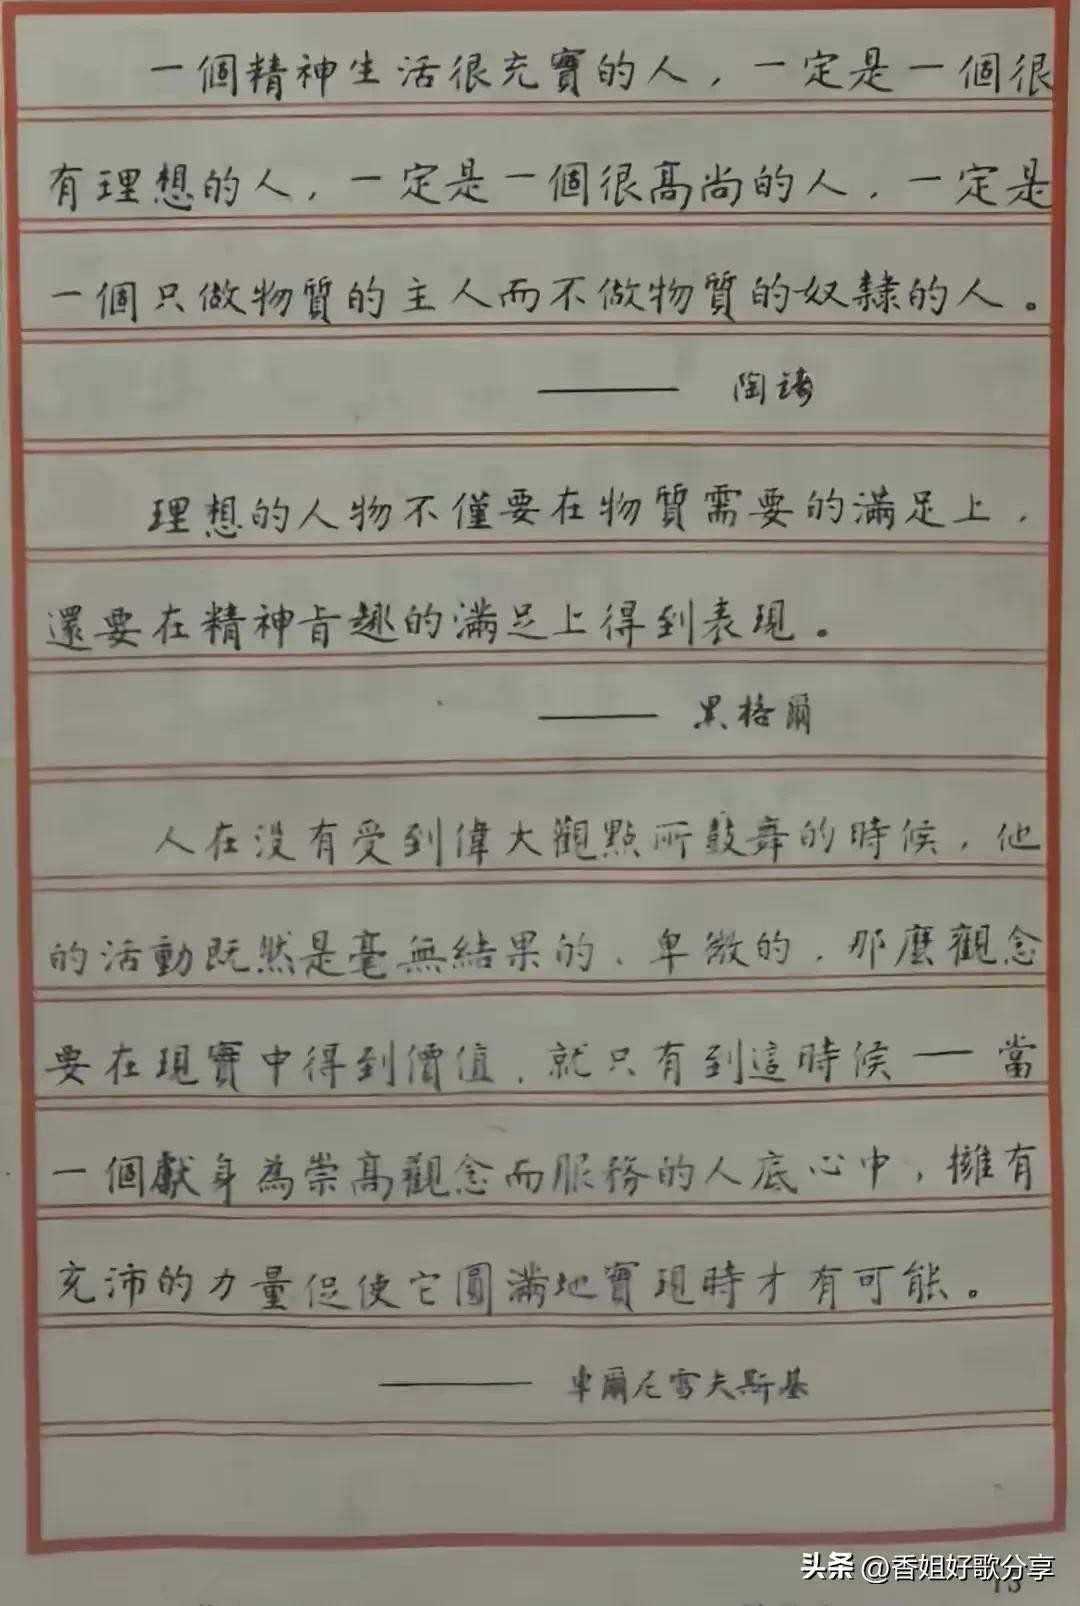 一個精神生活很充實的人，一定是一個很
有理想的人，一定是一個很高尚的人，一定是
一個只做物質的主人而不做物質的奴隸的人。
—— 陶鑄
理想的人物不僅要在物質需要的滿足上，
還要在精神旨趣的滿足上得到表現。
—— 黑格爾
人在没有受到偉大觀點所鼓舞的時候，他
的活動既然是毫無結果的、卑微的，那麽觀念
要在現實中得到價值，就只有到這時候——當
一個獻身為崇高觀念而服務的人底心中，擁有
充沛的力量促使它圓滿地實現時才有可能。
—— 車爾尼雪夫斯基
头条 @香姐好歌分享
13